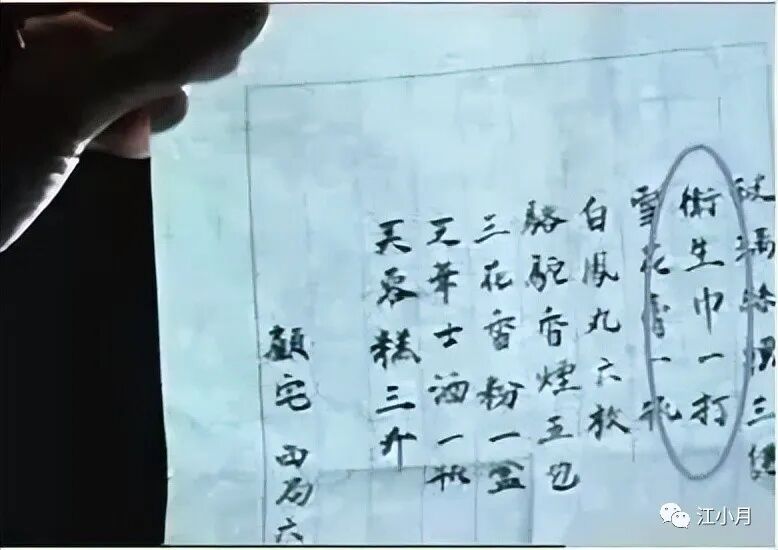 玻璃絲襪三
衛生巾一打
雪花膏一瓶
白鳳丸六
駱駝香煙五包
三花香粉一盒
華士酒一瓶
芙蓉糕三斤
顧宅 西局六
江小月